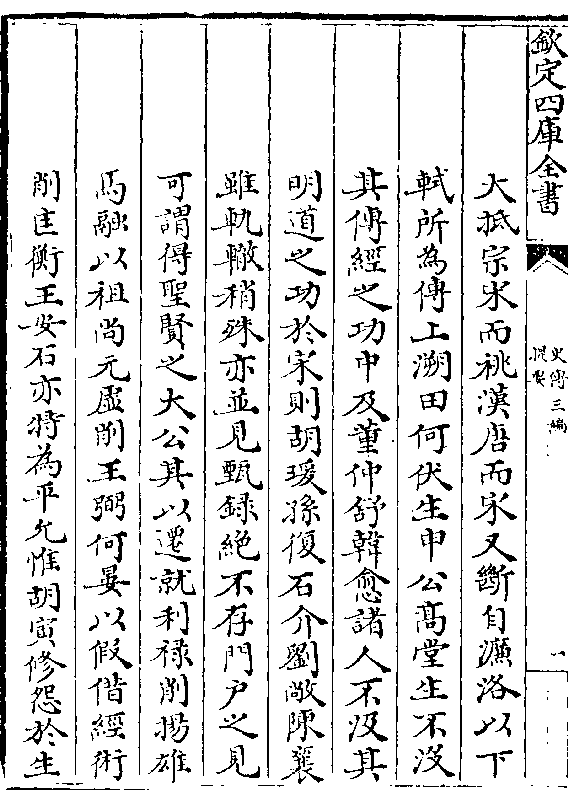 欽定四庫全書
史傳三編
提要
一
大抵宗宋而祧漢唐而宋又斷自濂洛以下
軾所為傳上溯田何伏生申公髙堂生不沒
其傳經之功中及董仲舒韓愈諸人不沒其
明道之功於宋則胡瑗孫復石介劉敞陳襄
雖軌轍稍殊亦並見甄録絶不存門户之見
可謂得聖賢之大公其以遷就利禄削揚雄
馬融以祖尚元虚削王弼何晏以假借經術
削匡衡王安石亦特為平允惟胡寅修怨於生